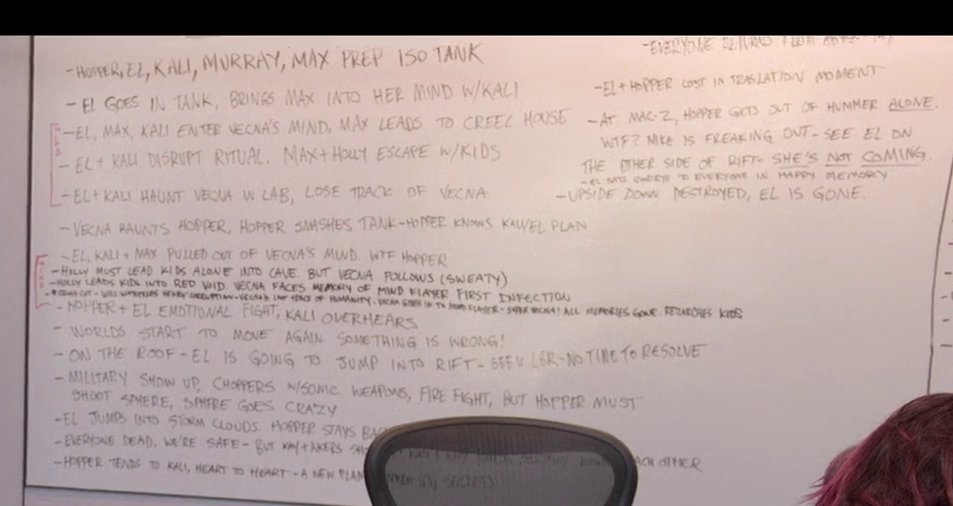 -HOPPER, EL, KALI, MURRAY, MAX PREP ISO TANK
- EL GOES IN TANK, BRINGS MAX INTO HER MIND W/KALI
-EL, MAX, KALI ENTER VECNA'S MIND, MAX LEADS TO CREEL HOUSE
- EL + KALI DISRUPT RITUAL. MAX+HOLLY ESCAPE W/KIDS
-EL+KALI HAUNT VECNA IN LAB, LOSE TRACK OF VECNA
- VECNA HAUNTS HOPPER, HOPPER SMASHES TANK-HOPPER KNOWS KALI/EL PLAN
- EL, KALI + MAX PULLED OUT OF VECNA'S MIND. WTF HOPPER
-HOLLY MUST LEAD KIDS ALONE INTO CAVE. BUT VECNA FOLLOWS (SWEATY)
-HOLLY LEADS KIDS INTO RED VOID. VECNA FACES MEMORY OF MIND FLAYER FIRST INFECTION
- WILL WITNESSES HENRY CORRUPTION - VECNA'S LAST OF HUMANITY. VECNA GIVES IN TO MIND FLAYER - SUPER VECNA! ALL MEMORIES GONE. REACHES KIDS
- HOPPER + EL EMOTIONAL FIGHT, KALI OVERHEARS
- WORLDS START TO MOVE AGAIN. SOMETHING IS WRONG!
- ON THE ROOF-EL IS GOING TO JUMP INTO RIFT - - NO TIME TO RESOLVE
- MILITARY SHOW UP, CHOPPERS W/SONIC WEAPONS, FIRE FIGHT, BUT HOPPER MUST
SHOOT SPHERE, SPHERE GOES CRAZY
-EL JUMPS INTO STORM CLOUDS. HOPPER STAYS
-EVERYONE DEAD, WE'RE SAFE - BUT KAY+AKERS EACH OTHER
-HOPPER TENDS TO KALI, HEART TO HEART - A NEW PLAN
-EVERYONE RETURNS FROM
-EL+HOPPER LOST IN TRASLATION MOMENT
-AT MAC-Z, HOPPER GETS OUT OF HUMMER ALONE.
WTF? MIKE IS FREAKING OUT-SEE EL ON
THE OTHER SIDE OF RIFT- SHE'S NOT COMING.
-EL SAYS GOODBYE TO EVERYONE IN HAPPY MEMORY
-UPSIDE DOWN DESTROYED, EL IS GONE.